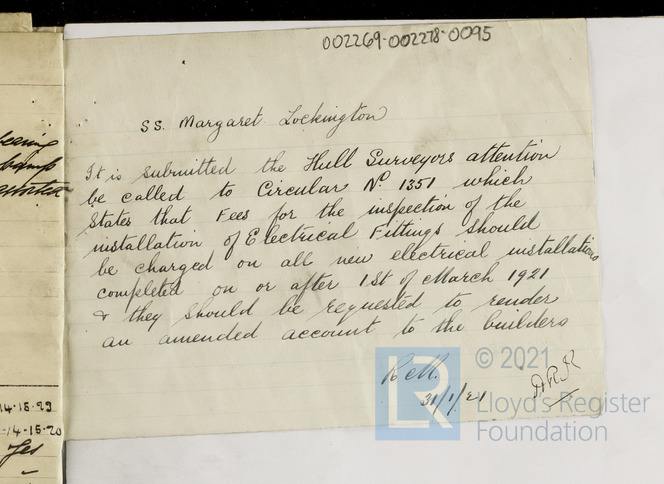 002269-002278-0095
SS. Margaret Lockington
It is submitted the Hull Surveyors attention
be called to Circular No. 1351 which
States that Fees for the inspection of the
installation of Electrical Fittings should
be charged on all new electrical installations
completed on or after 1st of March 1921
& they should be requested to render
an amended account to the builders
31/1/21
14-15-20
Yes
LR
© 2021
Lloyd's Register
Foundation